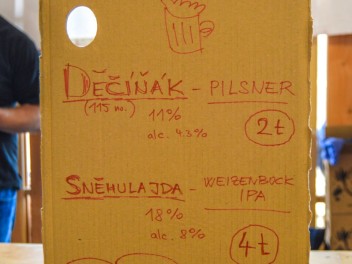 DĚČÍŇÁK - PILSNER
(115 no.)
11%
alc. 4.3%
2t
SNĚHULAJDA - WEIZENBOCK
IPA
18%
alc. 8%
4t